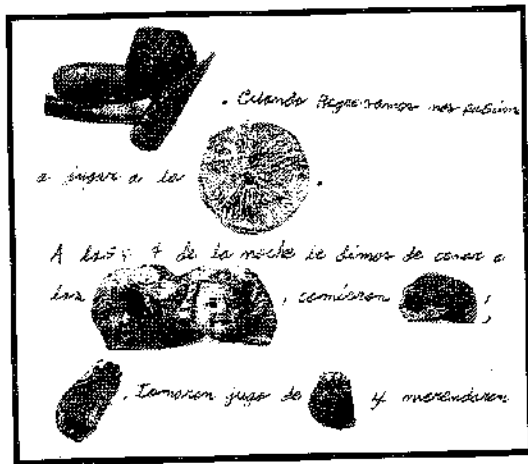 . Cuando Regresamos nos pusimos
a jugar a la .
A las 7 de la noche le dimos de cenar a
las , comieron ;
. Tomaron jugo de y merendaron